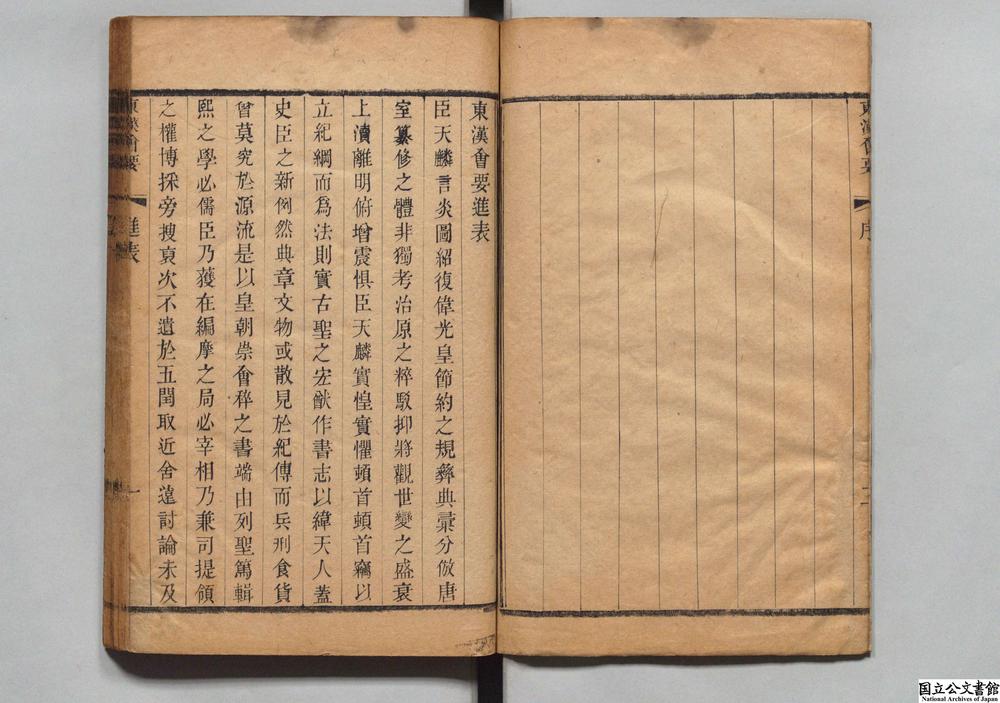 東漢會要
序
二
東漢會要進表
臣天麟言炎圖紹復偉光皇節約之規彝典彙分倣唐
室纂修之體非獨考治原之粹駁抑將觀世變之盛衰
上瀆離明俯增震惧臣天麟實惶實懼頓首頓首竊以
立紀綱而爲法則實古聖之宏猷作書志以緯天人蓋
史臣之新例然典章文物或散見於紀傳而兵刑食貨
曾莫究於源流是以皇朝崇會稡之書端由列聖篤輯
熙之學必儒臣乃獲在編摩之局必宰相乃兼司提領
之權博採旁搜裒次不遺於五閏取近舍遠討論未及
東漢會要
進表
一
国立公文書館
National Archives of Japan